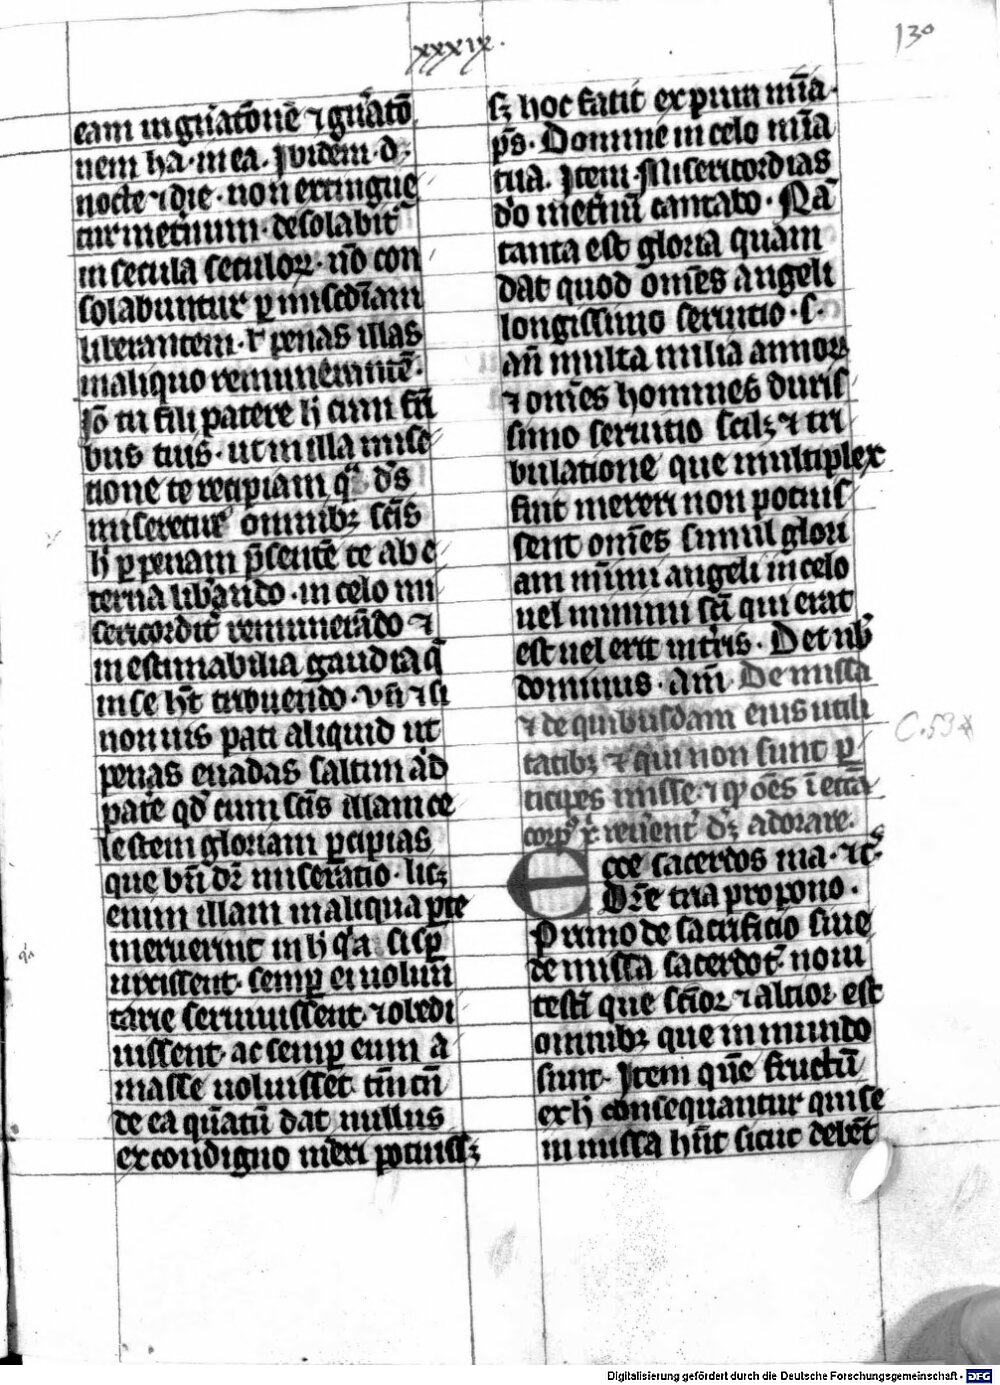 xxxix.
130
eam in gnãtōnē ⁊ gnãtō
nem ha·in ea. Ibidem·d
nocte ⁊ die·non extingue
tur in etnum·desolabit̃
in secula seculoꝝ·nō con
solabuntur ꝑ misc̄diam
liberantem· penas illas
in aliquo remunerantē·
Iō tu fili patere h̄ cum frĩ
bus tuis·ut in illa mise
tione te recipiam qͣ dꝰs
miseretur omnibꝫ sc̄is
h̄ ꝑ penam p̃sentē te ab e
terna libando·in celo mi
sericordit̃ remunerādo ⁊
inestimabilia gaudia q̄
in se hn̄t tribuendo·vn̄ ⁊ si
non uis pati aliquid ut
penas euadas saltim ad
patē qd̄ cum sc̄is illam ce
lestem gloriam ꝑcipias
que bn̄ dr̄ miseratio·licꝫ
enim illam in aliqua ꝑte
meruerint in h̄ qͥa si semꝑ
uixissent·semꝑ ei uolun
tarie seruiuissent·⁊ obedi
uissent·ac semꝑ eum a
masse uoluissēt tn̄ tn̄
de ea qn̄atū dat nullus
ex condigno mēri potuissꝫ
sꝫ hoc facit ex pura mīa·
ps̄·Domine in celo mīa
tua. Item·Misericordias
dn̄o in etnū cantabo·Nā
tanta est gloria quam
dat quod om̄es angeli
longissimo seruitio·s·
an̄ multa milia annoꝝ
⁊ om̄es homines duris
simo seruitio scilꝫ ⁊ tri
bulatione que multiplex
fint mereri non potuis
sent om̄es simul glori
am minimi angeli in celo
uel minimi sc̄i qui erat
est uel erit in tr̄is·Det nb̄
dominus·am̄ De missa
⁊ de quibusdam eius utili
tatibꝫ ⁊ qui non sunt ꝑ
ticipes misse·⁊ qͦ oēs ī ecc̄a
corpꝰ xͥ reuēent̃ dꝫ adorare·
C. 53
Ecce sacerdos ma·⁊c̄
Dr̄e tria propono·
Primo de sacrificio siue
de missa sacerdot̃·noui
testi que sc̄ior ⁊ altior est
omnibꝫ que in mundo
sunt·Item quē fructū
ex h̄ consequantur qui se
in missa hn̄t sicut debēt
Digitalisierung gefördert durch die Deutsche Forschungsgemeinschaft - DFG